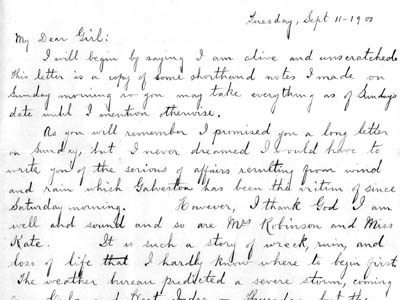 Tuesday, Sept 11-1900
My Dear Girl:
I will begin by saying I am alive and unscratched
this letter is a copy of some shorthand notes I made on
Sunday morning so you may take everything as of Sunday's
date until I mention otherwise.
As you will remember I promised you a long letter
on Sunday, but I never dreamed I would have to
write you of the serious of affairs resulting from wind
and rain which Galveston has been the victim of since
Saturday morning. However, I thank God I am
well and sound and so are Mrs Robinson and Miss
Kate. It is such a story of wreck, ruin, and
loss of life that I hardly know where to begin first
The weather bureau predicted a severe storm, coming